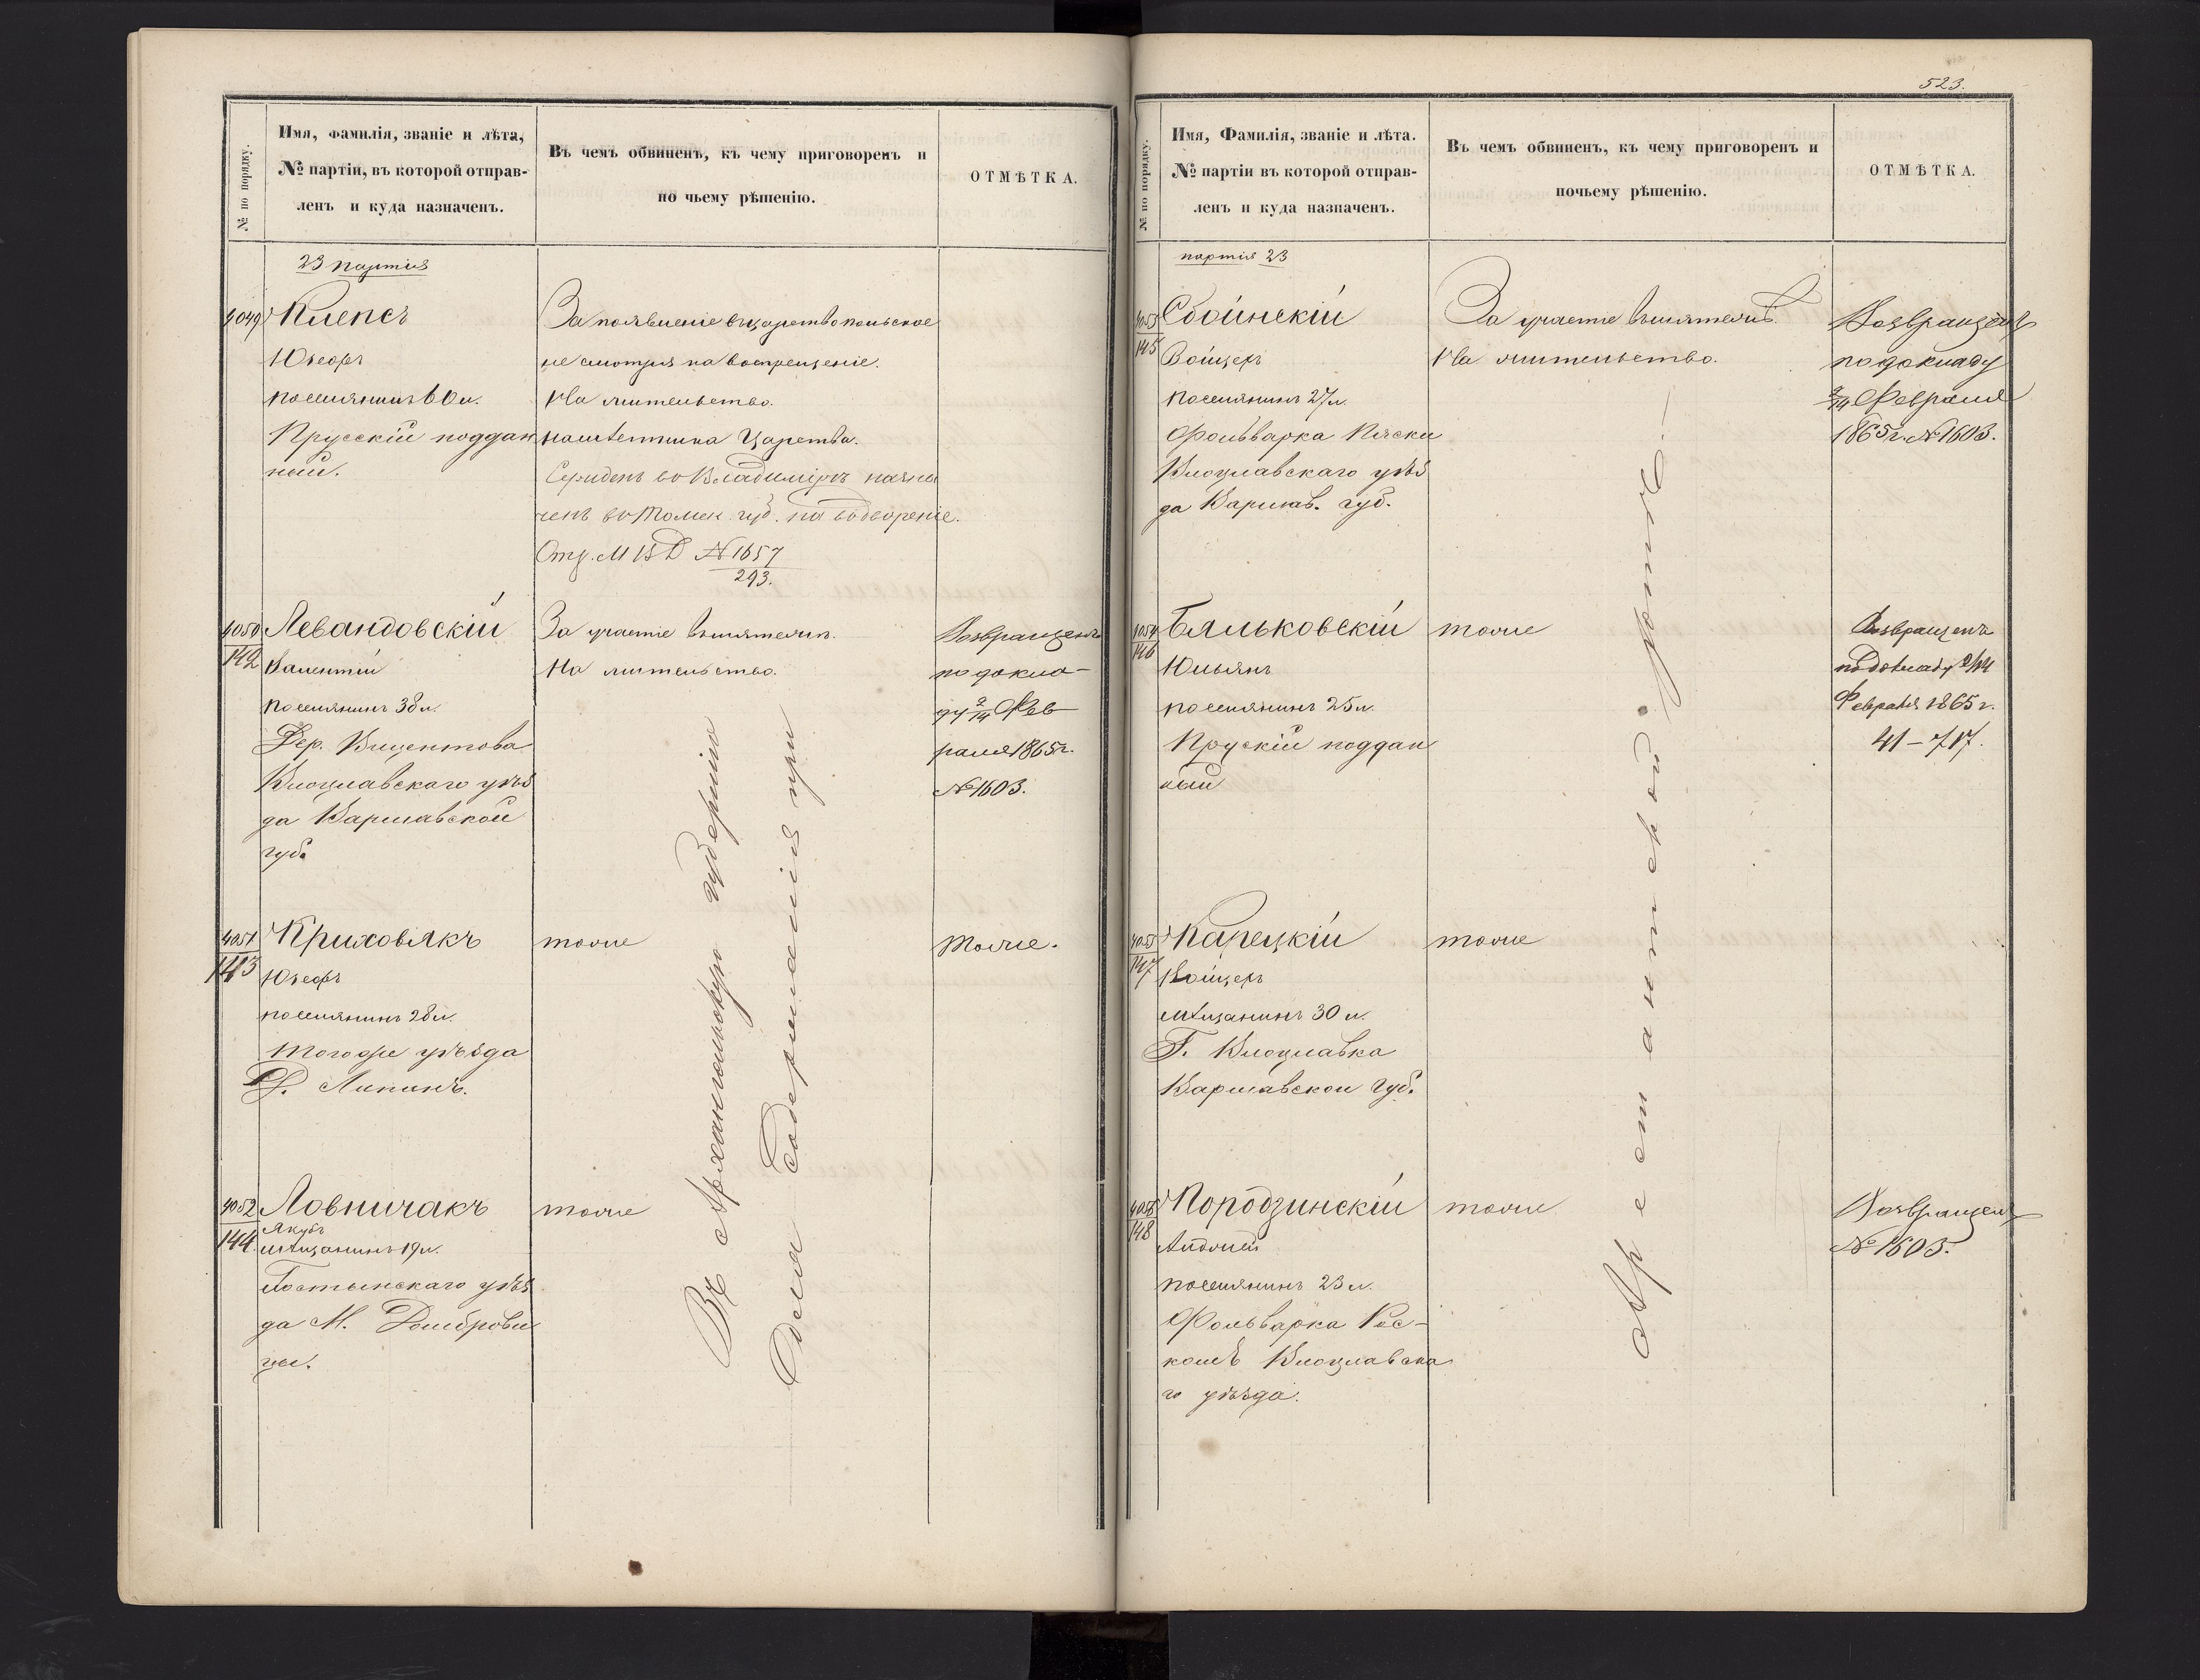 № по порядку.
Имя, Фамилія, званіе и лѣта,
№ партіи, въ которой отправ-
ленъ и куда назначенъ.
Въ чемъ обвиненъ, къ чему приговоренъ и
по чьему рѣшенію.
ОТМѢТКА.
23 партія
4049
Клепсъ
Юзефъ
поселянинъ 60 л.
Прусскій поддан
ный.
За появленіе въ царство польское
не смотря на воспрещеніе.
На жительство.
намѣстника Царства.
во Владимірѣ назна
ченъ во Томск. губ. на водвореніе.
Отз. МВД № 1657
293.
4050
142
Левандовскій
Валентій
поселянинъ 38 л.
Дер. Вицентова
Влоцлавскаго уѣз
да Варшавской
губ.
За участіе въ мятежѣ.
На жительство.
Возвращенъ
по докла-
ду 2/14 Фев
раля 1865 г.
№ 1603.
4051
143
Криховякъ
Юзефъ
поселянинъ 28 л.
Тогоже уѣзда
Д. Липинъ.
тоже
тоже.
4052
144
Ловничакъ
Якубъ
мѣщанинъ 19 л.
Гостынскаго уѣз
да М. Домброви
цы.
тоже
Въ Архангельскую губернію
Для содержанія при
523.
№ по порядку.
Имя, Фамилія, званіе и лѣта.
№ партіи въ которой отправ-
ленъ и куда назначенъ.
Въ чемъ обвиненъ, къ чему приговоренъ и
почьему рѣшенію.
ОТМѢТКА.
партія 23
4053
145
Сбоинскій
Войцехъ
поселянинъ 27 л.
Фольварка Пяски
Влоцлавскаго уѣз
да Варшав. губ.
За участіе въ мятежѣ.
На жительство.
Возвращенъ
по докладу
2/14 Февраля
1865 г. № 1603.
4054
146
Бяльковскій
Юльянъ
поселянинъ 25 л.
Прускій поддан
ный
тоже
Возвращенъ
по докладу 2/14
Февраля 1865 г.
41 – 717.
4055
147
Карецкій
Войцехъ
мѣщанинъ 30 л.
Г. Влоцлавка
Варшавской Губ.
тоже
4056
148
Породзинскій
Андрей
поселянинъ 23 л.
Фольварка Рос-
Влоцлавска
го уѣзда.
тоже
Возвращенъ
№ 1603.
Арестантской ротѣ.